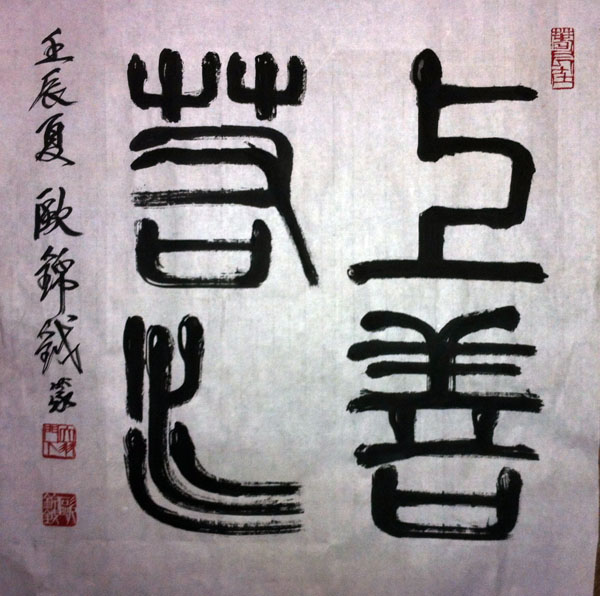 上善
若水
壬辰夏 歐錦鉞篆